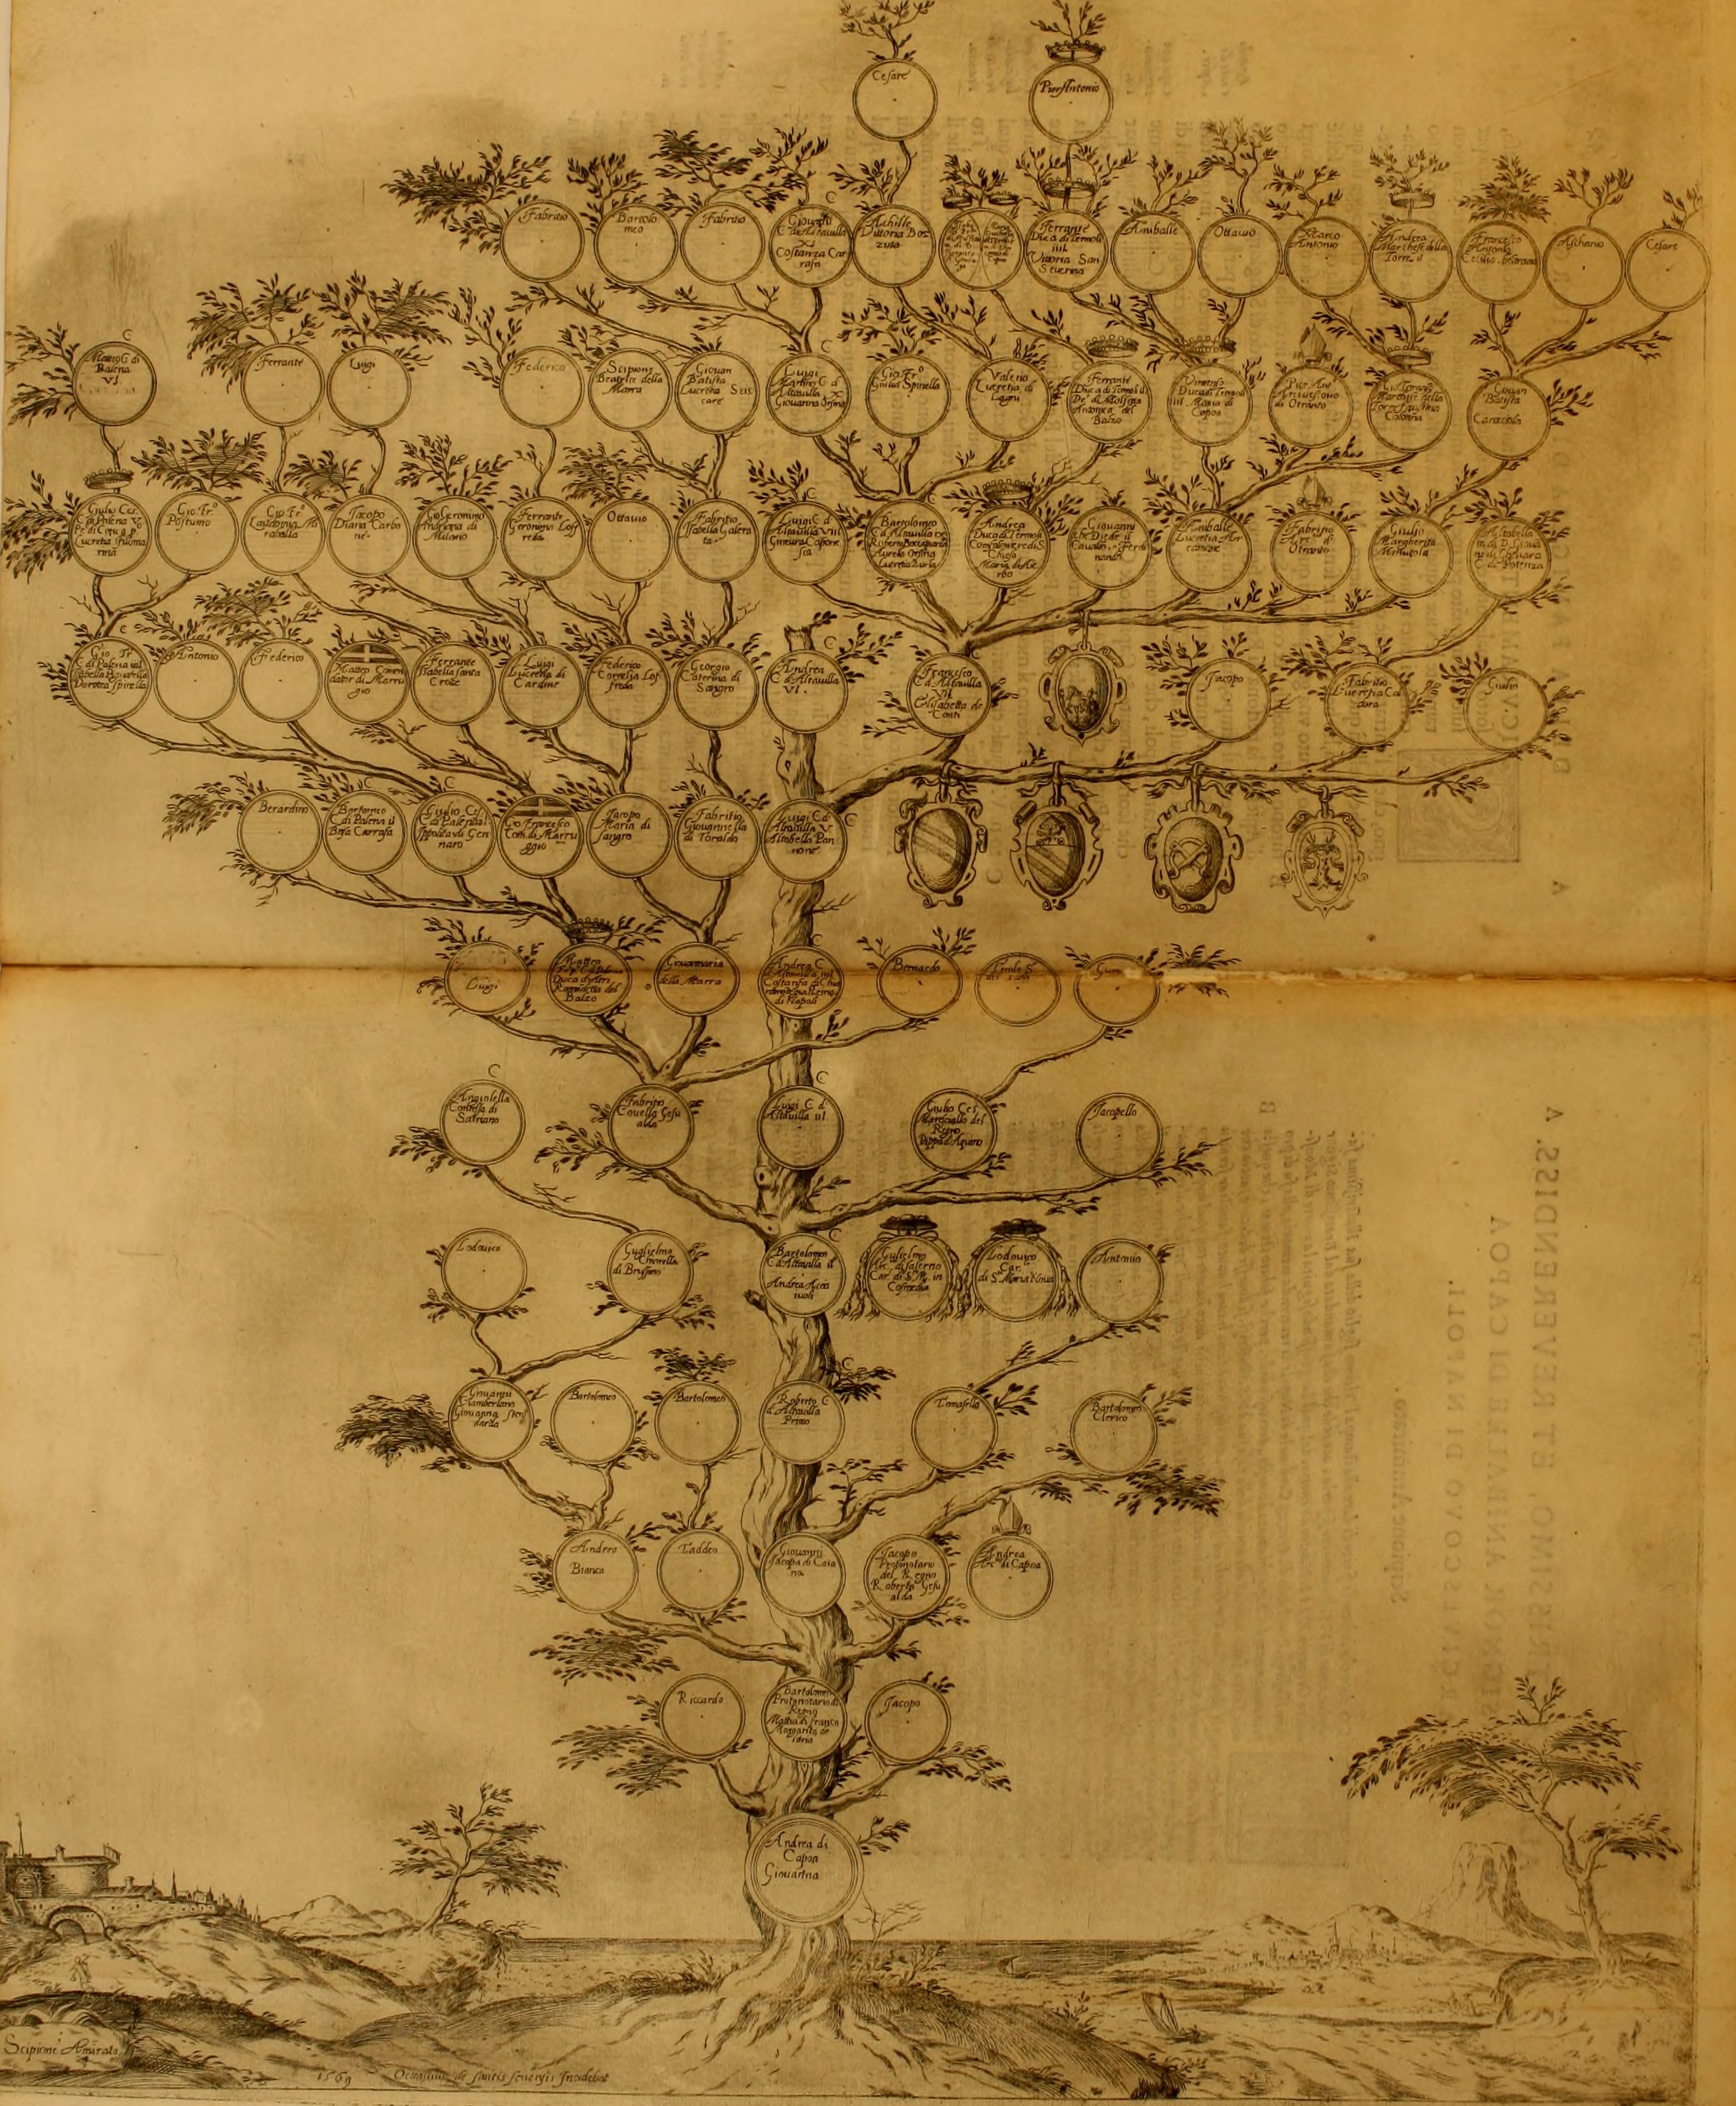 Cesare
Pier Antonio
Fabritio
Bartolo
meo
Fabritio
C
Giovanni
C d'Altavilla
XI
Costanza Car
rafa
Achille
Vittoria Boz
zuta
Ferrante
Duca di Termoli
IIII
Vittoria San
Severina
Aniballe
Ottavio
Marco
Antonio
Andrea
Marchese della
Torre il
Francesco
Antonio
Aschanio
Cesare
C
Matteo C di
Palena
VI
Ferrante
Luigi
Federico
Scipione
Beatrice della
Marra
Giovan
Batista
Lucretia Seis
care
C
Luigi
Martino C d
Altavilla X
Giovanna Orsina
Gio. Fr.º
Giulia Spinella
Valerio
Lucretia di
Lagni
Ferrante
Duca di Termoli il
Pe di Molfetta
Antonica del
Balzo
Vincenzo
Duca di Termoli
III Maria di
Capoa
Pier Ant.
Arcivescovo
di Otranto
Gio. Tomaso
Marchese della
Torre Faustina
Colonna
Giovan
Batista
Caracciola
Giulio Ces.
C di Palena V
Pe di Conca
Lucretia Filoma
rina
Gio. Fr.º
Postumo
Gio. Fr.º
Laudonia Mi
raballa
Jacopo
Diana Carbo
ne
Gio Geronimo
Andriana di
Milano
Ferrante
Geronima Lof
freda
Ottavio
Fabritio
Isabella Galeo
ta
C
Luigi C d
Altavilla VIII
Ginevra Capone
sca
C
Bartolomeo
C d Altavilla IX
Aurelia Orsina
Lucretia Zurla
Andrea
Duca di Termoli
Confaloniere di S.
Chiesa
Maria di Ae
rbo
Giovanni
che Diede il
Cavallo a Ferdi
nando
Aniballe
Lucretia Ar
camone
Fabritio
Arc. di
Otranto
Giulio
Margherita
Minutola
Altobella
m. di D. Giova
ni di Guevara
C. di Potenza
C
Gio. Tr
C di Palena IIII
Isabella Pignatella
Dorotea Spinella
Antonio
Federico
Matteo Comen
dator di Marru
gio
Ferrante
Isabella santa
Croce
Luigi
Lucretia di
Cardine
Federico
Cornelia Lof
freda
Georgio
Caterina di
Sangro
C
Andrea
C d Altavilla
VI.
Francesco
C d Altavilla
VII
Elisabetta de
Conti
Jacopo
Fabritio
Lucretia Cal
dara
Giulio
Berardino
C
Bartomeo
C di Palena il
Bisa Carrafa
C
Giulio Ces
C di Palena III
Ippolita di Gen
naro
Gio Francesco
Com. di Marru
ggio
Jacopo
Maria di
Sangro
Fabritio
Giovannella
di Toraldo
C
Luigi C d
Altavilla V
Altobella Pan
none
Luigi
Matteo
Duca d'Atri
Raimondetta del
Balzo
Giovannaria
della Marra
C
Andrea C
d Altavilla IIII
Costanza di Chia
ramonte gia Reina
di Napoli
Bernardo
C
Angiolella
Contessa di
Satriano
Fabritio
Covella Gesu
alda
C
Luigi C d
Altavilla III
Giulio Ces.
Maresciallo del
Regno
Pippa d'Aquino
Jacopello
Lodovico
Guglielmo
Chiorella
di Brussono
C
Bartolomeo
C d'Altavilla il
Andrea Accia
iuoli
Gulielmo
Arc. di Salerno
Car. di S. M. in
Cosmedin
Lodovico
Car.le
di S. Maria Nova
Antonio
Giovanni
Ciamberlano
Giovanna Sten
darda
Bartolomeo
Bartolomeo
C
Roberto C
d'Altavilla
Primo
Tomasello
Bartolomeo
Clerico
Andrea
Bianca
Taddeo
Giovanni
Jacopa di Caia
na
Jacopo
Protonotario
del Regno
Roberta Gesu
alda
Andrea
Arc. di Capoa
Riccardo
Bartolomeo
Protonotario di
Regno
Mattia di Franco
Margarita de
loria
Jacopo
Andrea di
Capoa
Giovanna
Scipione Amirato
1569 Octavius de santis senensis Incidebat